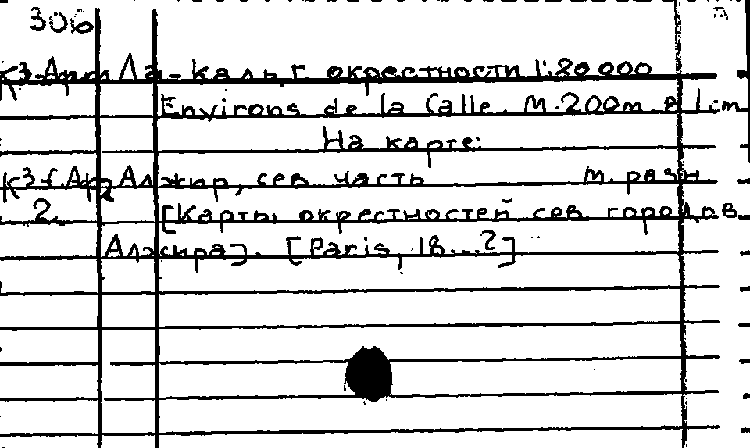 306
К3-Арм Ла-Каль г. окрестности 1:20 000
Environs de la Calle. М. 200m в 1cm
На карте:
К3-f.Ар Алжир, сев часть М. разн
2 [Карты окрестностей сев городов
Алжира]. [Paris, 18...?]